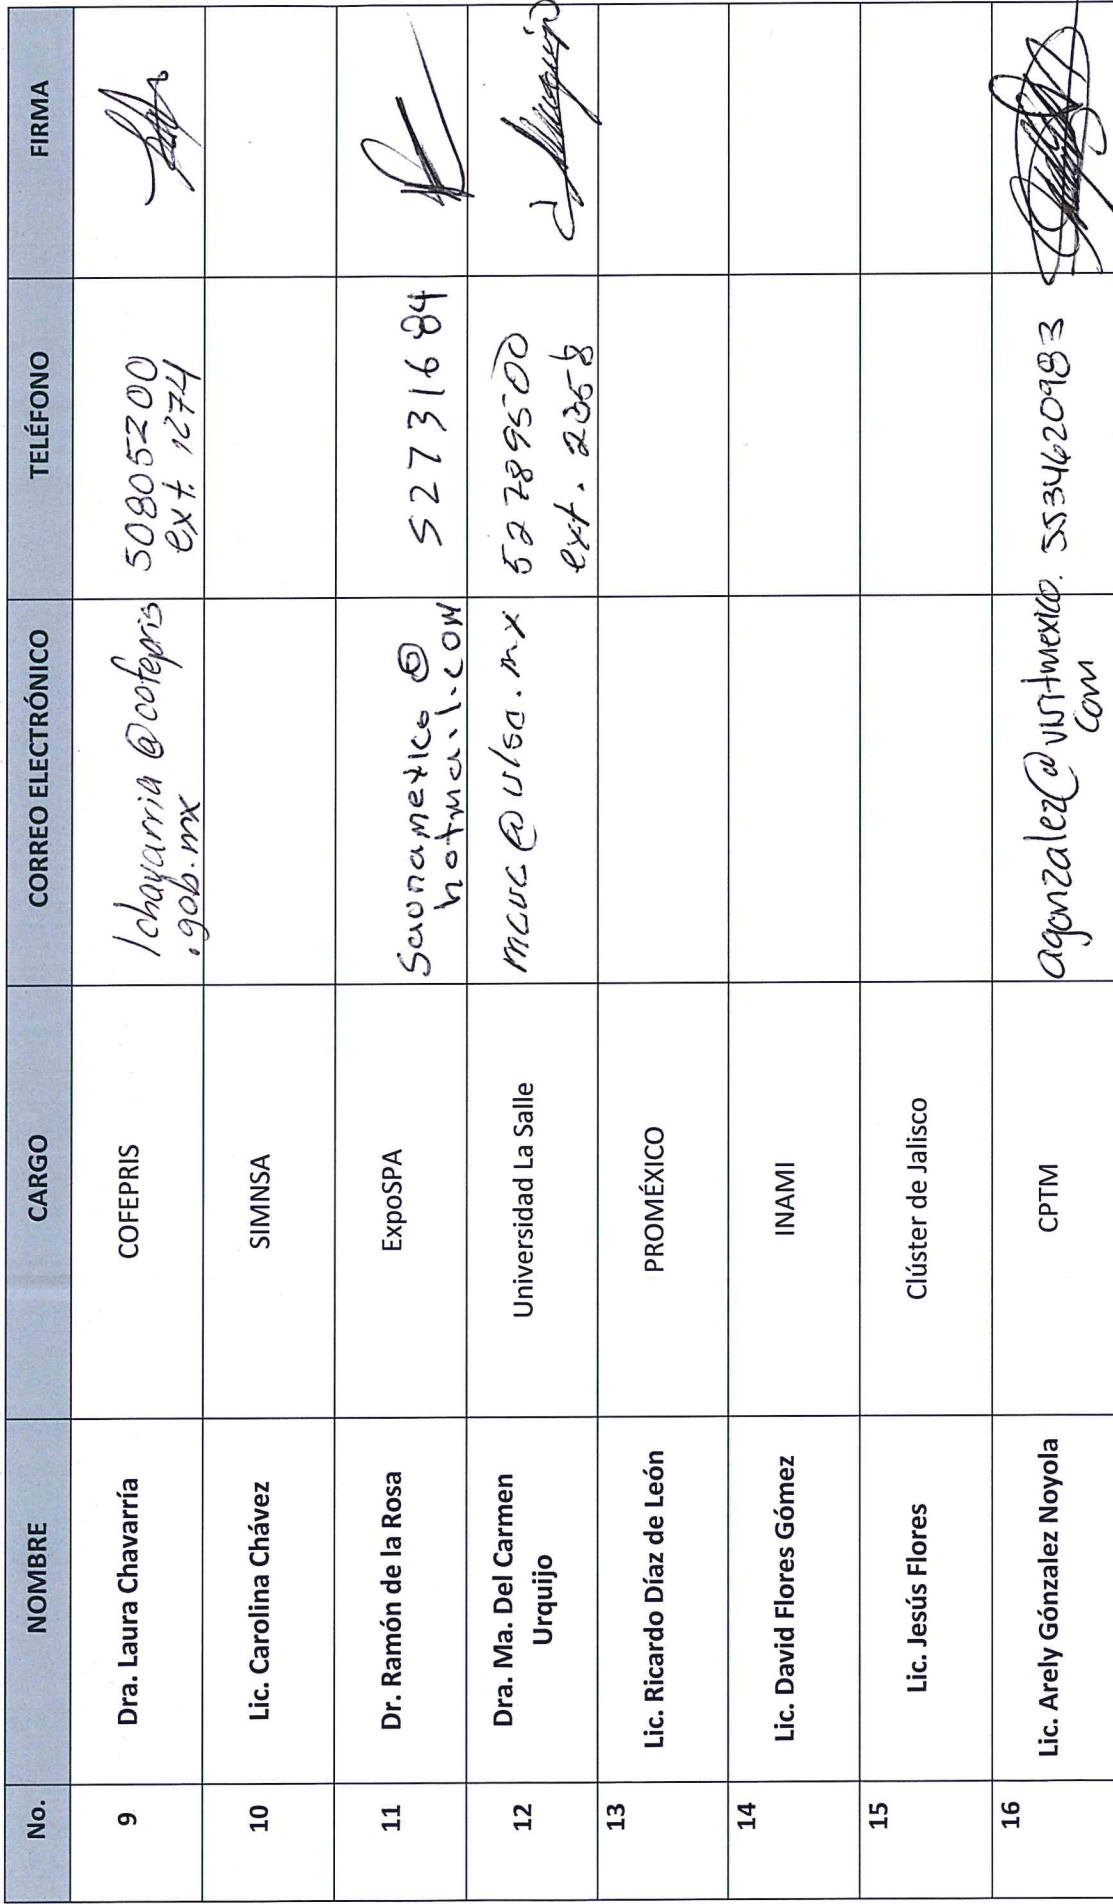 No. NOMBRE CARGO CORREO ELECTRÓNICO TELÉFONO FIRMA
9 Dra. Laura Chavarría COFEPRIS lchavarria@cofepris 50805200
.gob.mx ext. 1274
10 Lic. Carolina Chávez SIMNSA
11 Dr. Ramón de la Rosa ExpoSPA Saunamexico@ 52731684
hotmail.com
12 Dra. Ma. Del Carmen Universidad La Salle mcuc@ulsa.mx 52789500
Urquijo ext. 2358
13 Lic. Ricardo Díaz de León PROMÉXICO
14 Lic. David Flores Gómez INAMI
15 Lic. Jesús Flores Clúster de Jalisco
16 Lic. Arely Gónzalez Noyola CPTM agonzalez@visitmexico. 5534620983
com